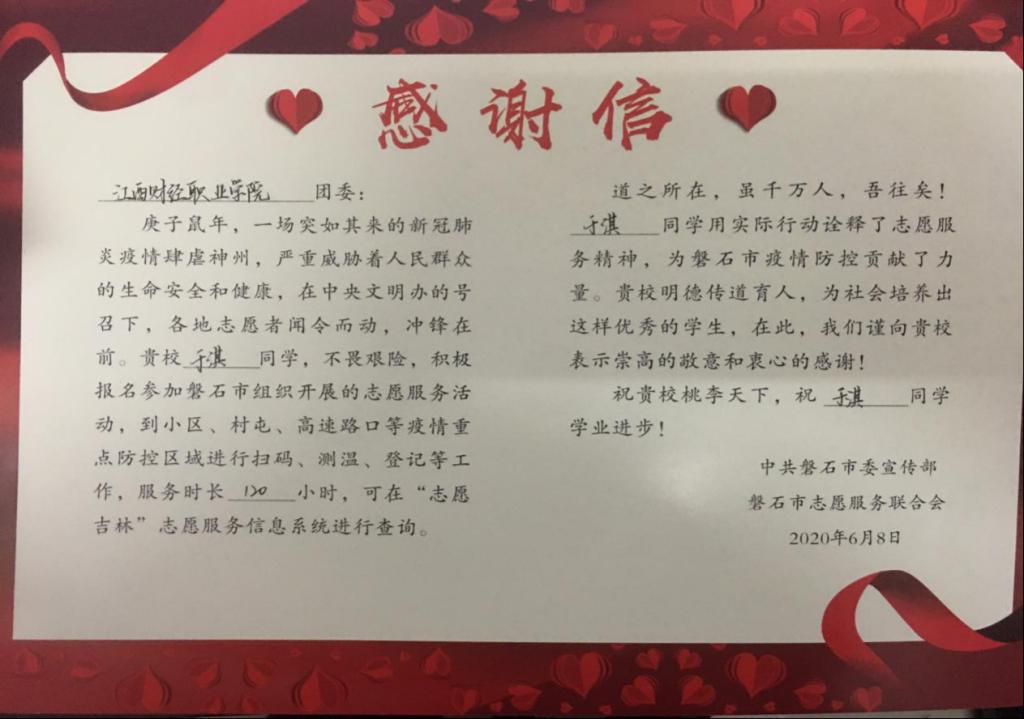 感谢信
江西财经职业学院团委：
庚子鼠年，一场突如其来的新冠肺
炎疫情肆虐神州，严重威胁着人民群众
的生命安全和健康，在中央文明办的号
召下，各地志愿者闻令而动，冲锋在
前。贵校于淇同学，不畏艰险，积极
报名参加磐石市组织开展的志愿服务活
动，到小区、村屯、高速路口等疫情重
点防控区域进行扫码、测温、登记等工
作，服务时长120小时，可在“志愿
吉林”志愿服务信息系统进行查询。
道之所在，虽千万人，吾往矣！
于淇同学用实际行动诠释了志愿服
务精神，为磐石市疫情防控贡献了力
量。贵校明德传道育人，为社会培养出
这样优秀的学生，在此，我们谨向贵校
表示崇高的敬意和衷心的感谢！
祝贵校桃李天下，祝于淇同学
学业进步！
中共磐石市委宣传部
磐石市志愿服务联合会
2020年6月8日